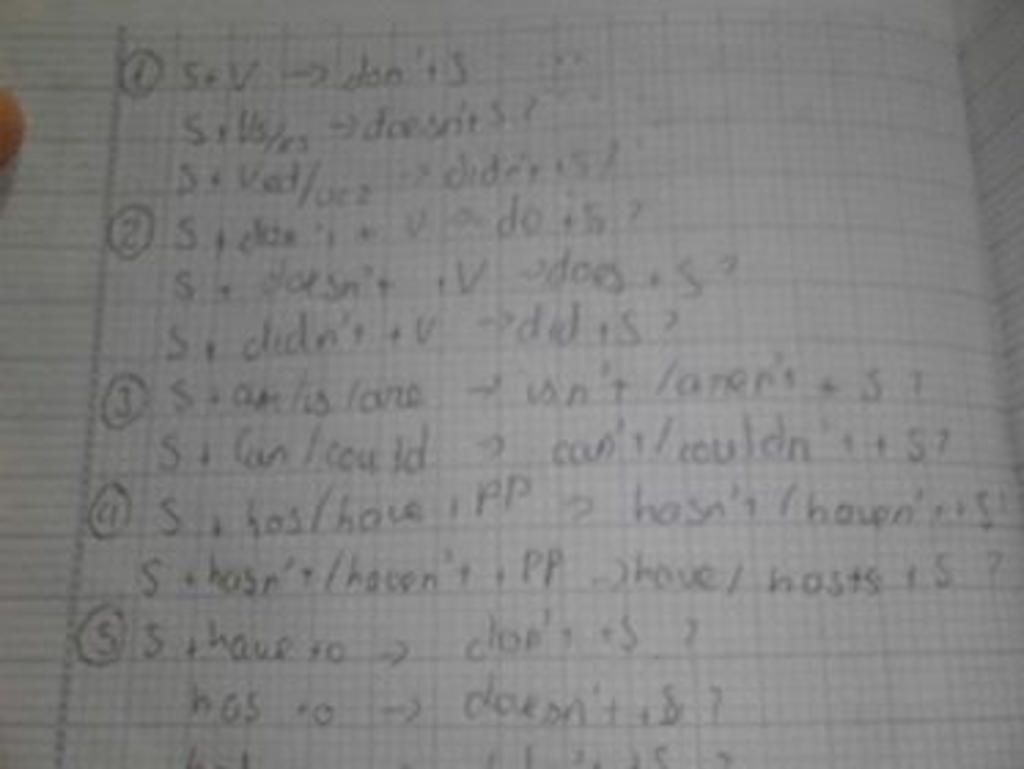 ① S+V → don't+S
S+Vs/es → doesn't+S?
S+Ved/ → didn't+S?
② S+don't+V → do+S?
S+doesn't+V → does+S?
S+didn't+V → did+S?
③ S+am/is/are → isn't/aren't+S?
S+Can/could → can't/couldn't+S?
④ S+has/have+PP → hasn't/haven't+S?
S+hasn't/haven't+PP → have/ +S?
⑤ S+have+o → don't+S?
has+o → doesn't+S?